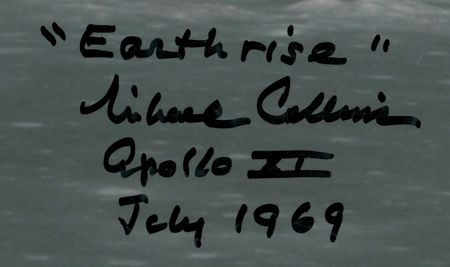 "Earthrise"
Michael Collins
Apollo XI
July 1969